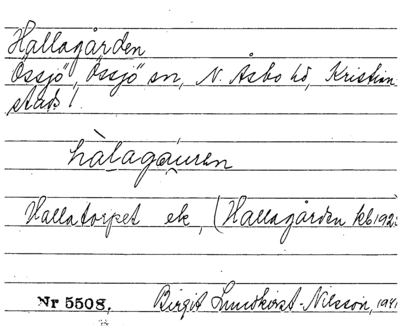 Hallagården
Össjö, Össjö sn, N. Åsbo hd, Kristian-
stads l.
hàlagáuren
Hallatorpet ek, (Hallagården kb 192
Nr 5508. Birgit Lundkvist-Nilsson, 1941